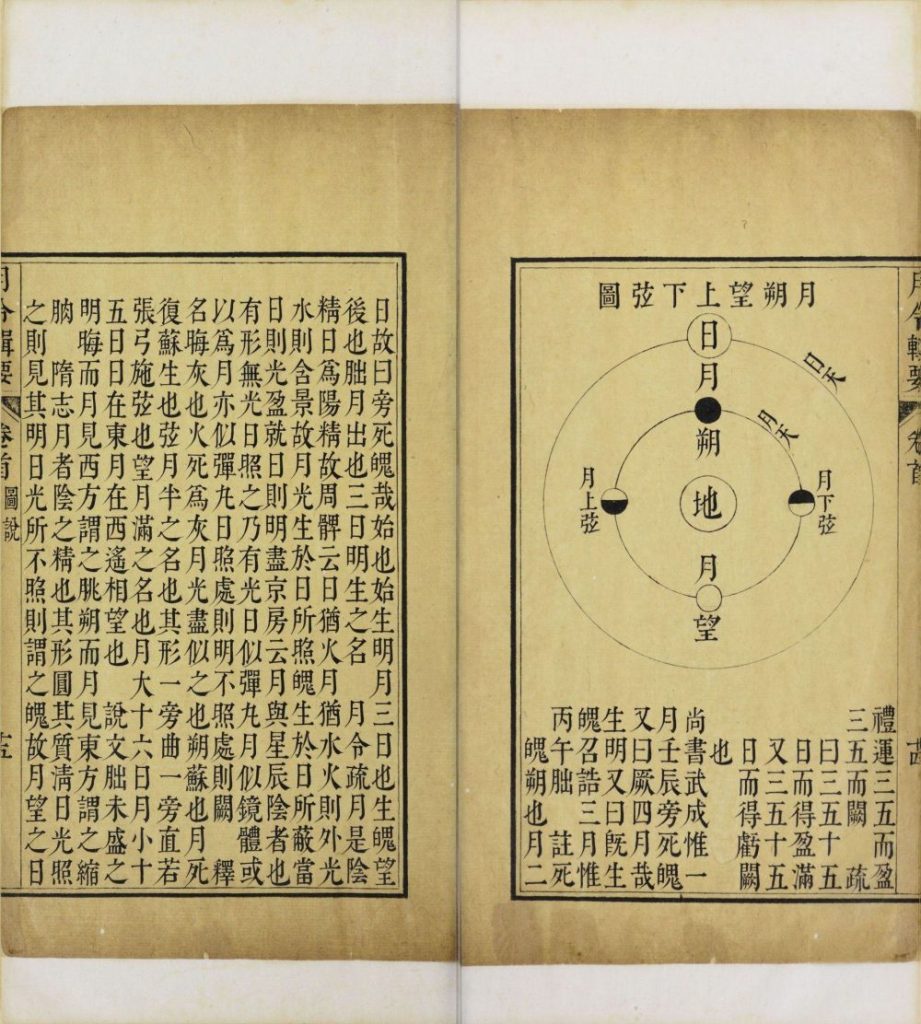 月令輯要
卷首
十四
月朔望上下弦圖
日
日天
月朔
月天
月下弦
地
月上弦
月望
禮運三五而盈
三五而闕 疏
曰三五十五
日而得盈滿
又三五十五
日而得虧闕
也
尚書武成惟一
月壬辰旁死魄
又曰厥四月哉
生明又曰既生
魄召誥三月惟
丙午朏 註死
魄朔也月二
日故曰旁死魄哉始也始生明月三日也生魄望
後也朏月出也三日明生之名 月令疏月是陰
精日爲陽精故周髀云日猶火月猶水火則外光
水則含景故月光生於日所照魄生於日所蔽當
日則光盈就日則明盡京房云月與星辰陰者也
有形無光日照之乃有光日似彈丸月似鏡體或
以爲月亦似彈丸日照處則明不照處則闕 釋
名晦灰也火死爲灰月光盡似之也朔蘇也月死
復蘇生也弦月半之名也其形一旁曲一旁直若
張弓施弦也望月滿之名也月大十六日月小十
五日日在東月在西遙相望也 說文朏未盛之
明晦而月見西方謂之朓朔而月見東方謂之縮
朒 隋志月者陰之精也其形圓其質清日光照
之則見其明日光所不照則謂之魄故月望之日
月令輯要
卷首
圖說
十五